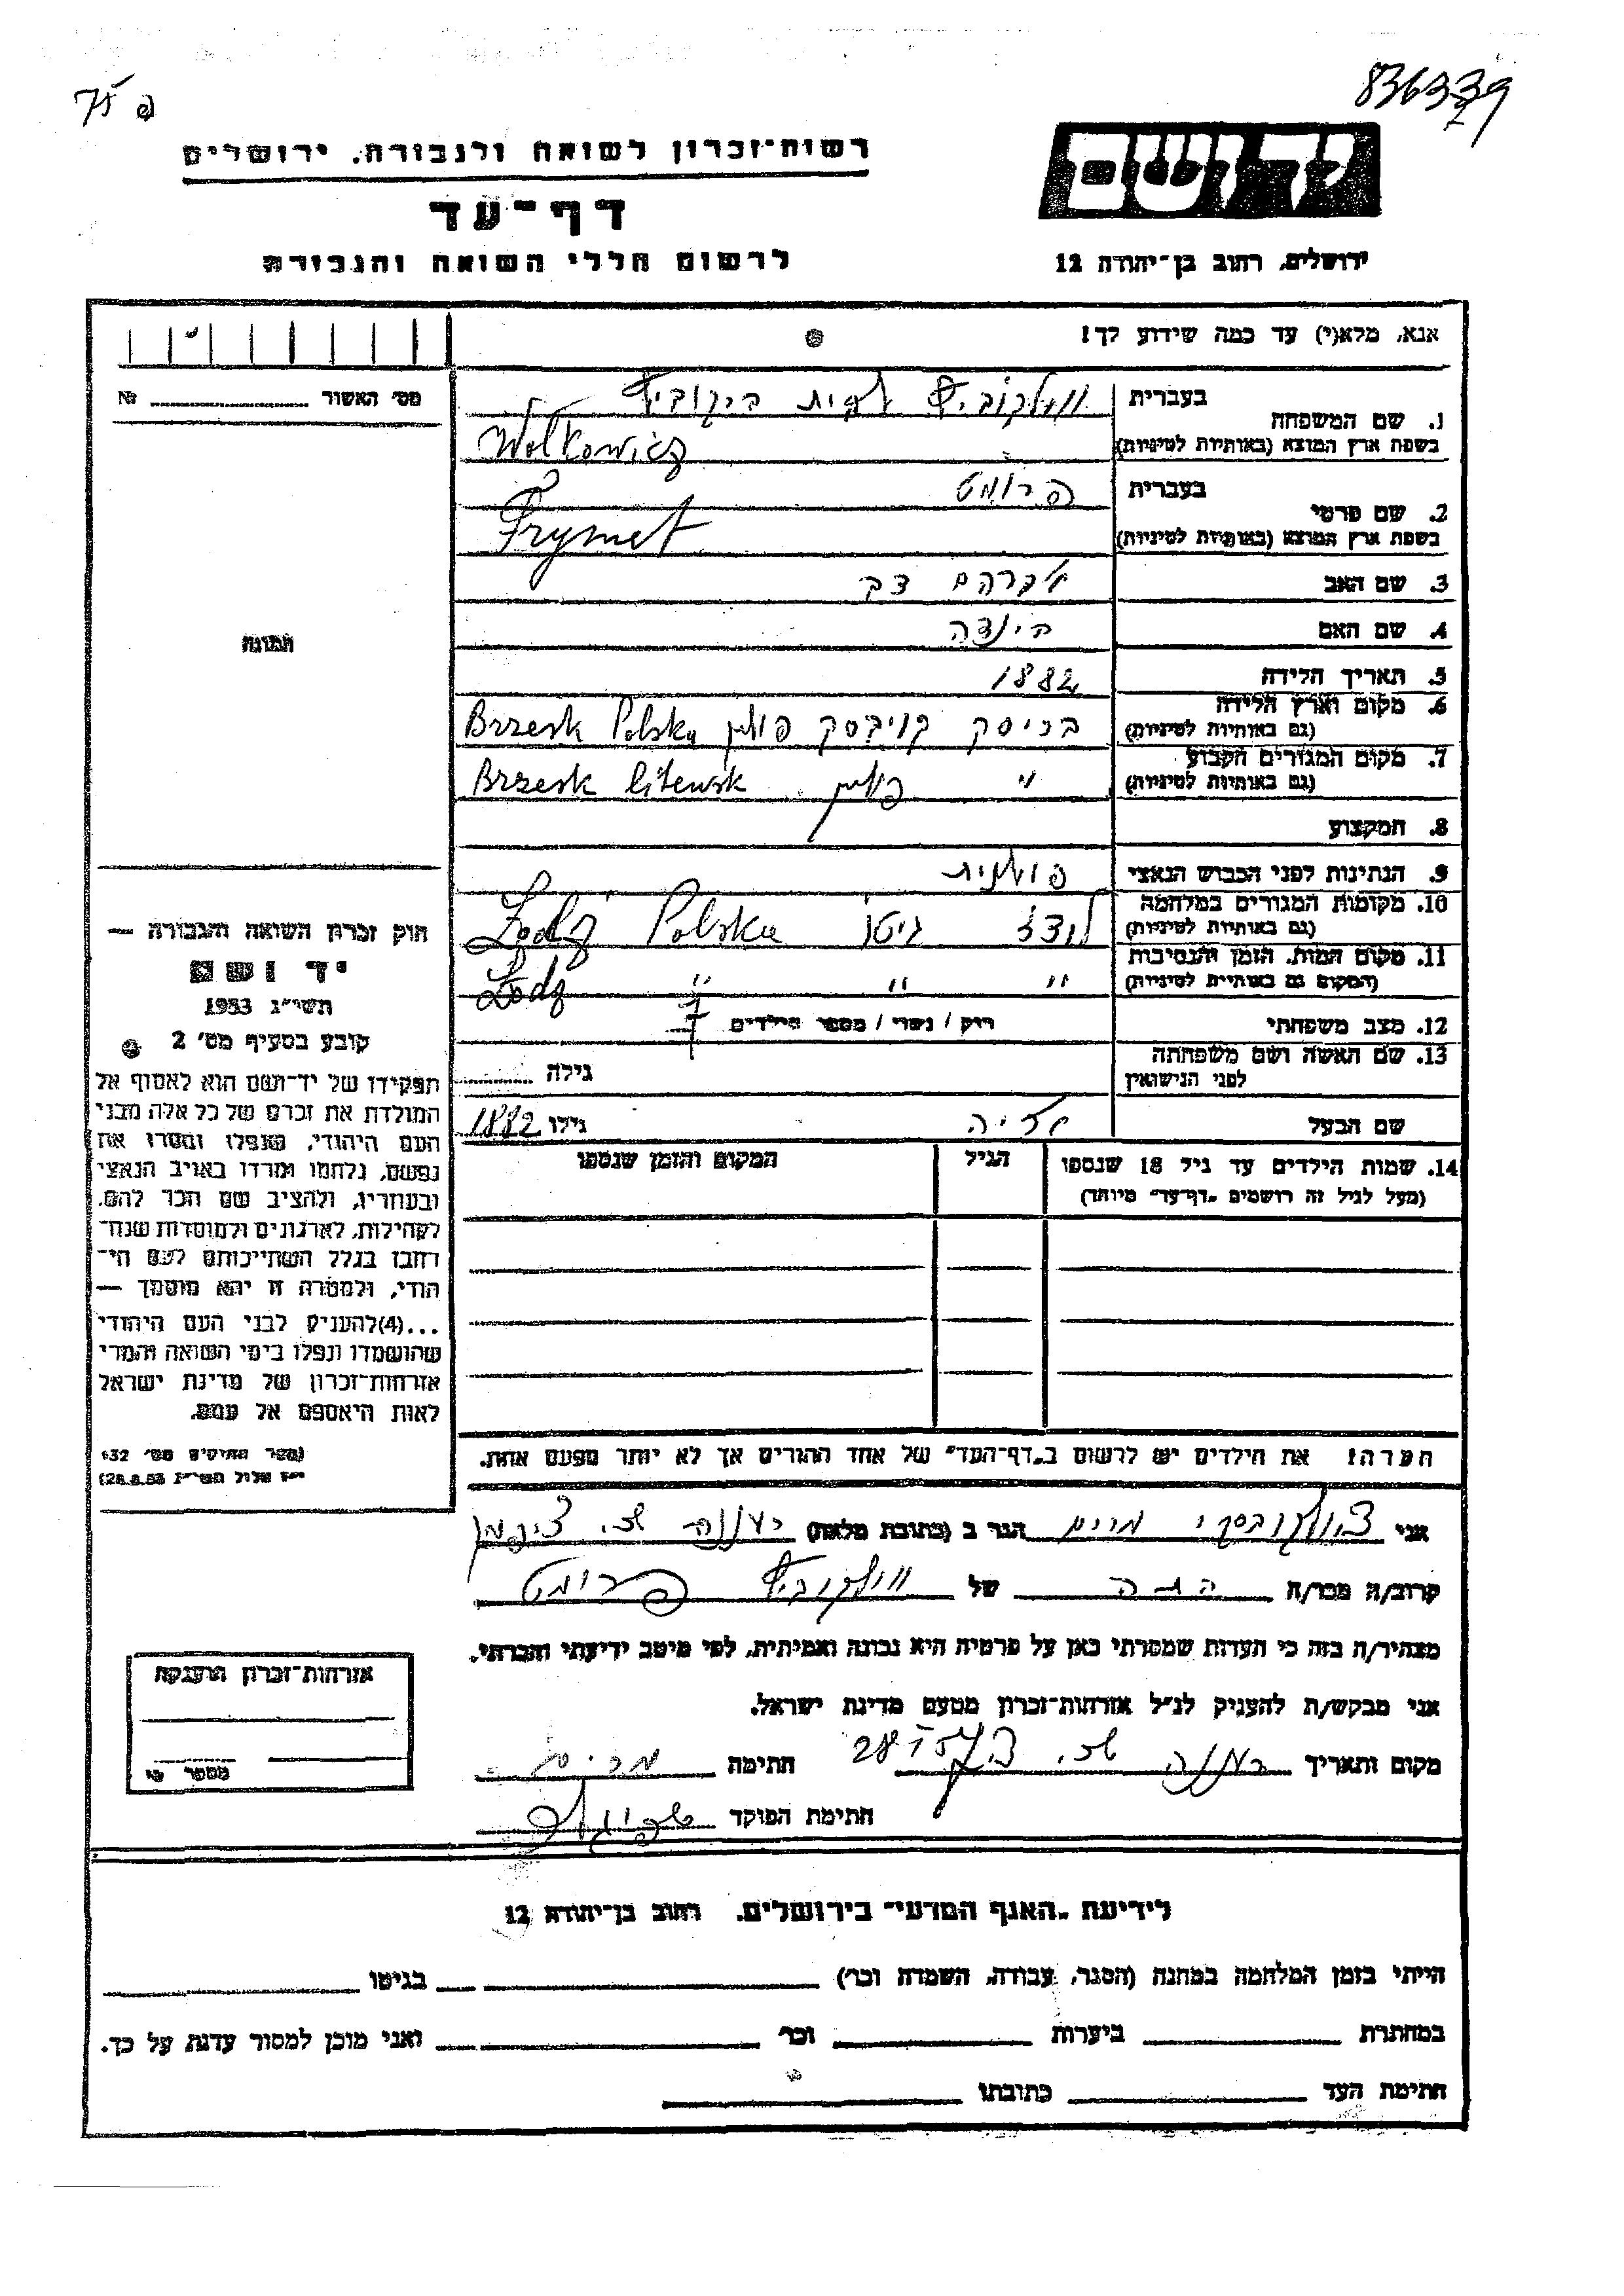 836339
פ 75
רשות־זכרון לשואה ולגבורה, ירושלים
יד ושם
דף־עד
לרשום חללי השואה והגבורה
ירושלים, רחוב בן־יהודה 12
אנא, מלא(י) עד כמה שידוע לך!
מס׳ האשור № 
1. שם המשפחה בעברית וולקוביץ לבית ביקוביץ
בשפת ארץ המוצא (באותיות לטיניות) Wolkowicz
2. שם פרטי בעברית פרומט
בשפת ארץ המוצא (באותיות לטיניות) Frymet
3. שם האב אברהם דב
4. שם האם הינדה
5. תאריך הלידה 1882
6. מקום וארץ הלידה (גם באותיות לטיניות) בריסק קויבסק פולין Brzesk Polska
7. מקום המגורים הקבוע (גם באותיות לטיניות) " פולין Brzesk litewsk
8. המקצוע
9. הנתינות לפני הכבוש הנאצי פולנית
10. מקומות המגורים במלחמה (גם באותיות לטיניות) לודז גיטו Łodz Polska
11. מקום המות, הזמן והנסיבות (המקום גם באותיות לטיניות) " " " Łodz
12. מצב משפחתי רוק / נשוי / מספר הילדים 7
13. שם האשה ושם משפחתה לפני הנישואין גילה
שם הבעל אריה גילו 1882
14. שמות הילדים עד גיל 18 שנספו
(מעל לגיל זה רושמים „דף־עד” מיוחד)
הגיל
המקום והזמן שנספו
הערה! את הילדים יש לרשום ב„דף־העד” של אחד ההורים אך לא יותר מפעם אחת.
תמונה
חוק זכרון השואה והגבורה —
יד ושם
תשי״ג 1953
קובע בסעיף מס׳ 2
תפקידו של יד־ושם הוא לאסוף אל
המולדת את זכרם של כל אלה מבני
העם היהודי, שנפלו ומסרו את
נפשם, נלחמו ומרדו באויב הנאצי
ובעוזריו, ולהציב שם וזכר להם,
לקהילות, לארגונים ולמוסדות שנח־
רבו בגלל השתייכותם לעם הי־
הודי, ולמטרה זו יהא מוסמך —
...(4)להעניק לבני העם היהודי
שהושמדו ונפלו בימי השואה והמרי
אזרחות־זכרון של מדינת ישראל
לאות היאספם אל עמם.
(ספר החוקים מס׳ 132
י״ז אלול תשי״ג 28.8.53)
אני מרים הגר ב (כתובת מלאה) רעננה
קרוב/ה מכר/ה של וולקוביץ פרומט
מצהיר/ה בזה כי העדות שמסרתי כאן על פרטיה היא נכונה ואמיתית, לפי מיטב ידיעתי והכרתי.
אני מבקש/ת להעניק לנ״ל אזרחות־זכרון מטעם מדינת ישראל.
מקום ותאריך רעננה חתימה מרים
חתימת הפוקד
אזרחות־זכרון הוענקה
מספר
לידיעת „האגף המדעי” בירושלים, רחוב בן־יהודה 12
הייתי בזמן המלחמה במחנה (הסגר, עבודה, השמדה וכר׳) בגיטו
במחתרת ביערות וכר׳ ואני מוכן למסור עדות על כך.
חתימת העד כתובתו